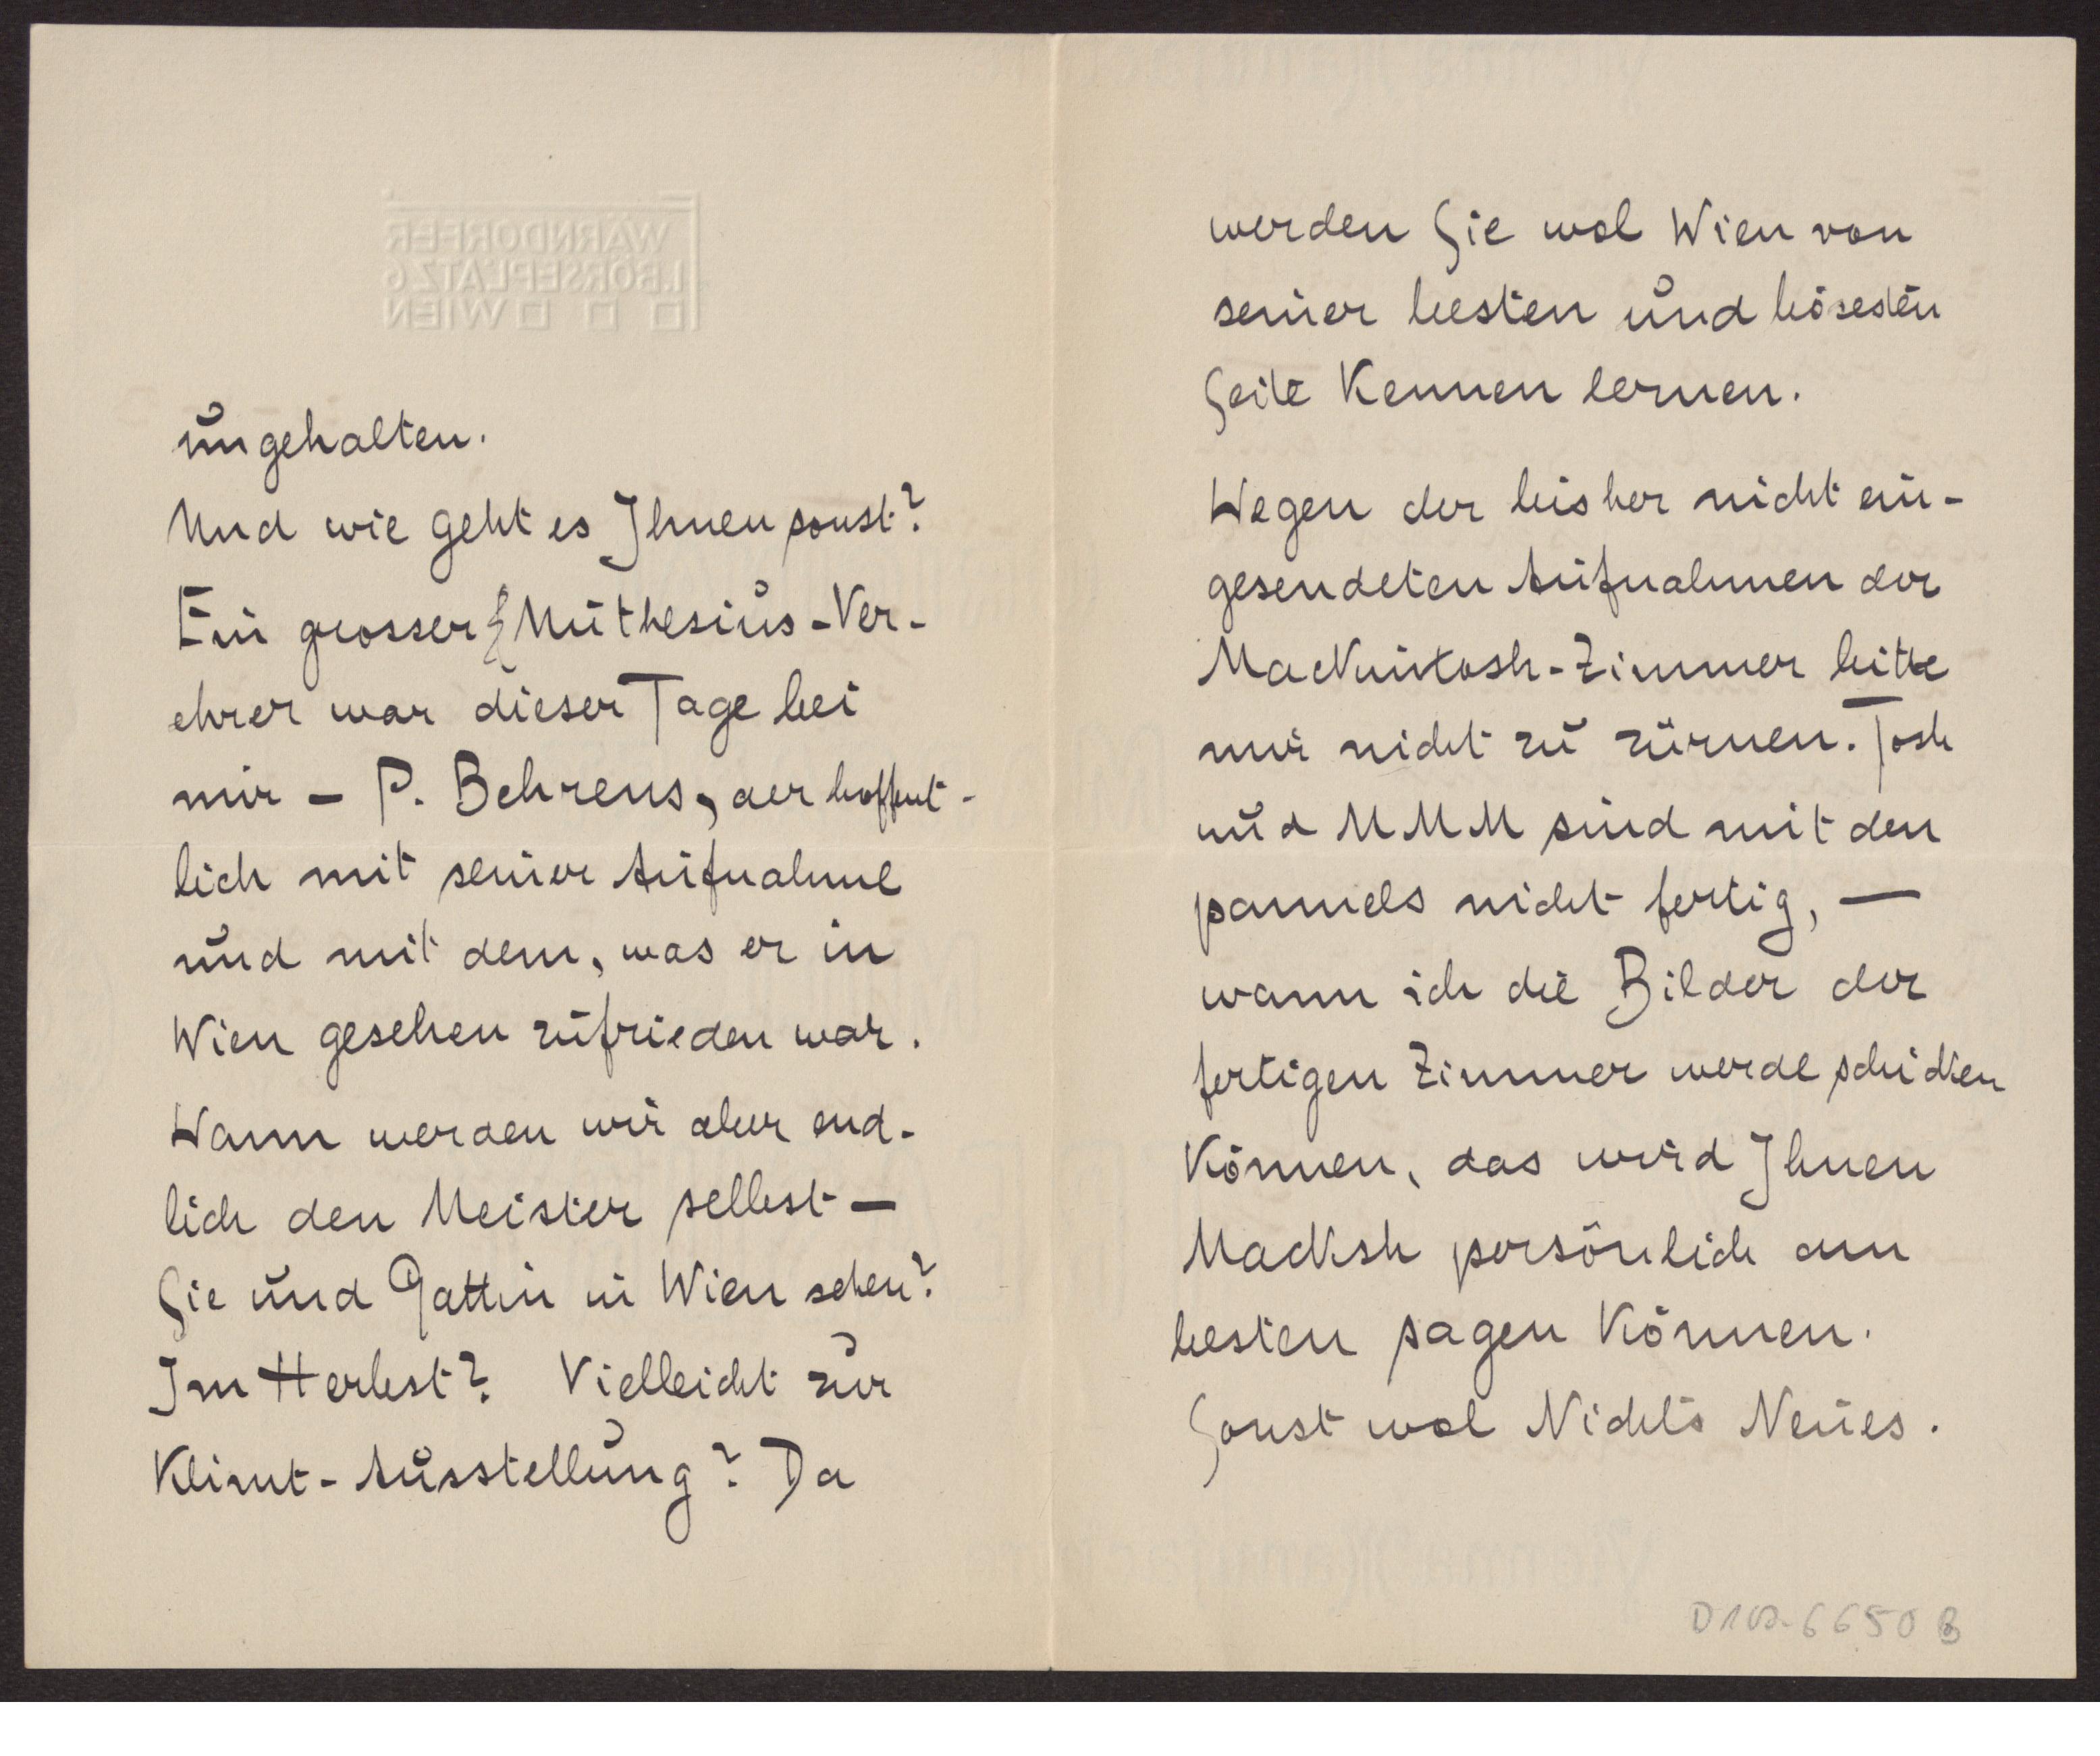 WÄRNDORFER
I. BÖRSEPLATZ 6
WIEN
ungehalten.
Und wie geht es Ihnen sonst?
Ein grosser Muthesius-Ver-
ehrer war dieser Tage bei
mir – P. Behrens, der hoffent-
lich mit seiner Aufnahme
und mit dem, was er in
Wien gesehen zufrieden war.
Wann werden wir aber end-
lich den Meister selbst –
Sie und Gattin in Wien sehen?
Im Herbst? Vielleicht zur
Klimt-Ausstellung? Da
werden Sie wol Wien von
seiner besten und bösesten
Seite kennen lernen.
Wegen der bisher nicht ein-
gesendeten Aufnahmen der
Mackintosh-Zimmer bitte
mir nicht zu zürnen. Tosh
und MMM sind mit den
pannels nicht fertig, –
wann ich die Bilder der
fertigen Zimmer werde schicken
können, das wird Ihnen
Macksh persönlich am
besten sagen können.
Sonst wol Nichts Neues.
D102-6650 B